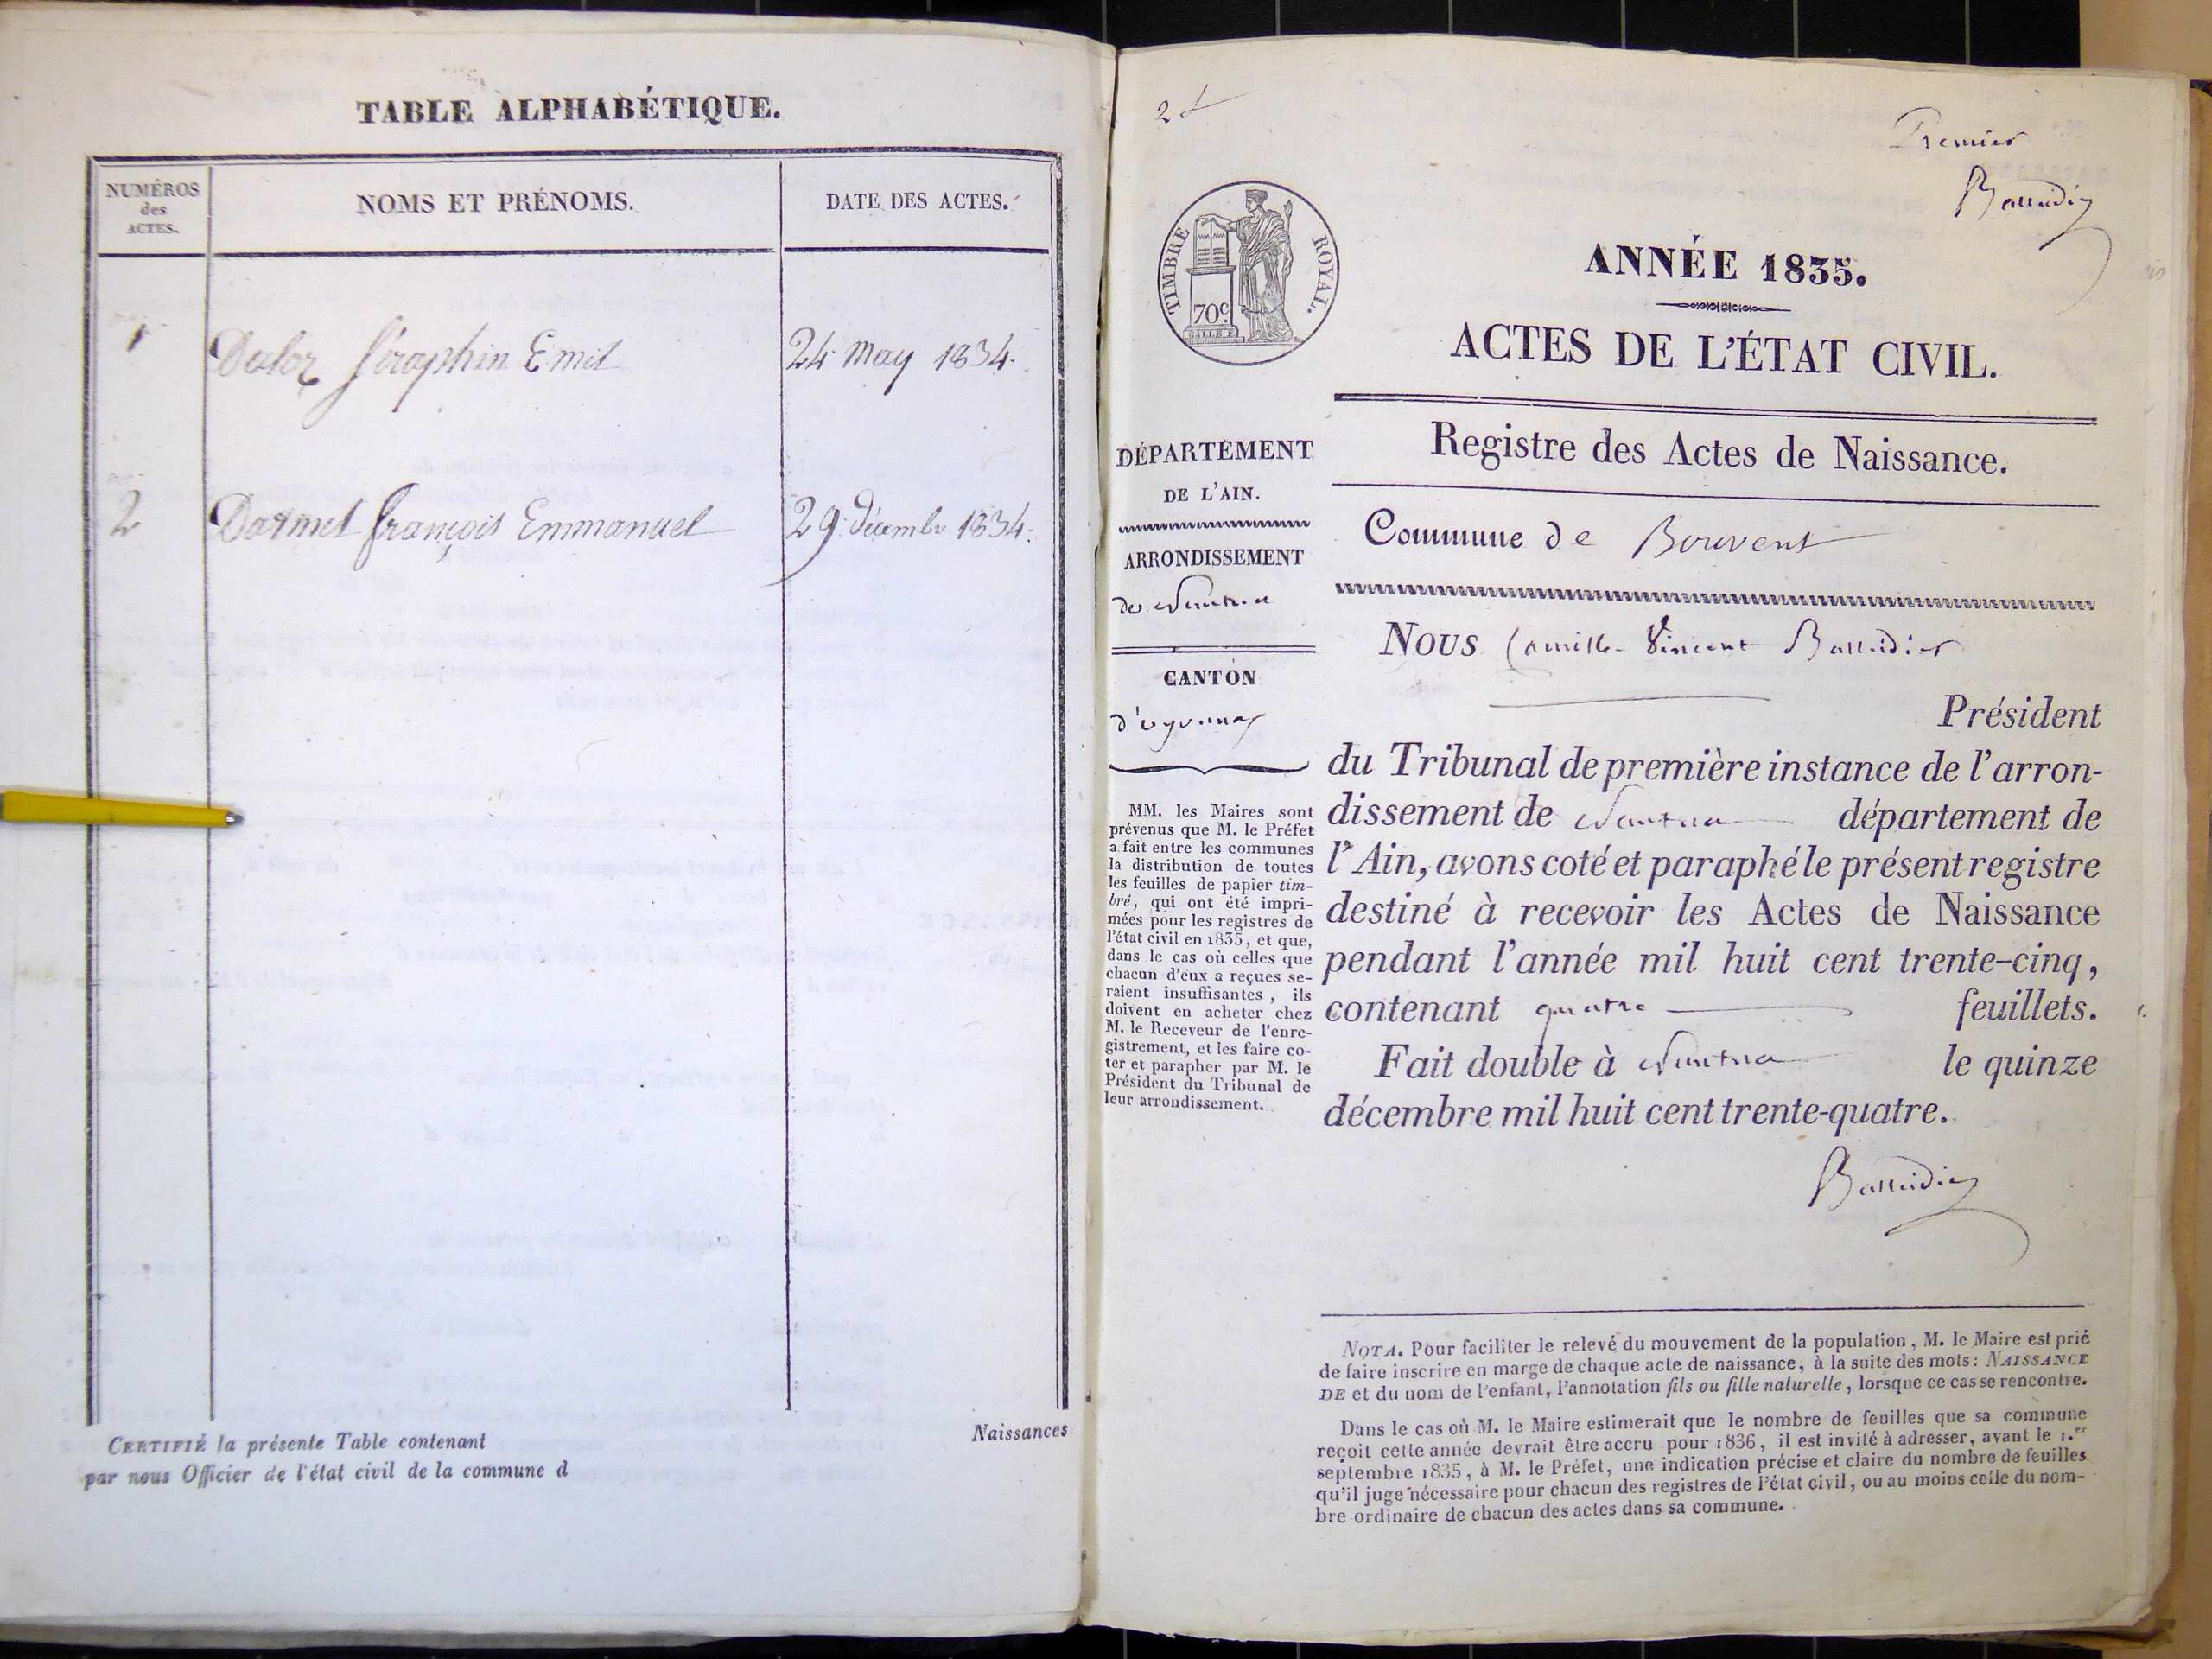 TABLE ALPHABÉTIQUE.
NUMÉROS
des
ACTES.
NOMS ET PRÉNOMS.
DATE DES ACTES.
1
Daloz Séraphin Emil
24 May 1834.
2
Darmet françois Emmanuel
29 décembre 1834.
CERTIFIÉ la présente Table contenant
par nous Officier de l'état civil de la commune d
Naissances
2
Premier
TIMBRE ROYAL.
70c
ANNÉE 1835.
ACTES DE L'ÉTAT CIVIL.
Registre des Actes de Naissance.
DÉPARTEMENT
DE L'AIN.
ARRONDISSEMENT
de Nantua
CANTON
d'oyonnax
MM. les Maires sont
prévenus que M. le Préfet
a fait entre les communes
la distribution de toutes
les feuilles de papier tim-
bré, qui ont été impri-
mées pour les registres de
l'état civil en 1835, et que,
dans le cas où celles que
chacun d'eux a reçues se-
raient insuffisantes, ils
doivent en acheter chez
M. le Receveur de l'enre-
gistrement, et les faire co-
ter et parapher par M. le
Président du Tribunal de
leur arrondissement.
Commune de Bouvent
Nous Camille Vincent
Président
du Tribunal de première instance de l'arron-
dissement de Nantua département de
l'Ain, avons coté et paraphé le présent registre
destiné à recevoir les Actes de Naissance
pendant l'année mil huit cent trente-cinq,
contenant quatre feuillets.
Fait double à Nantua le quinze
décembre mil huit cent trente-quatre.
NOTA. Pour faciliter le relevé du mouvement de la population, M. le Maire est prié
de faire inscrire en marge de chaque acte de naissance, à la suite des mots: NAISSANCE
DE et du nom de l'enfant, l'annotation fils ou fille naturelle, lorsque ce cas se rencontre.
Dans le cas où M. le Maire estimerait que le nombre de feuilles que sa commune
reçoit cette année devrait être accru pour 1836, il est invité à adresser, avant le 1.er
septembre 1835, à M. le Préfet, une indication précise et claire du nombre de feuilles
qu'il juge nécessaire pour chacun des registres de l'état civil, ou au moins celle du nom-
bre ordinaire de chacun des actes dans sa commune.